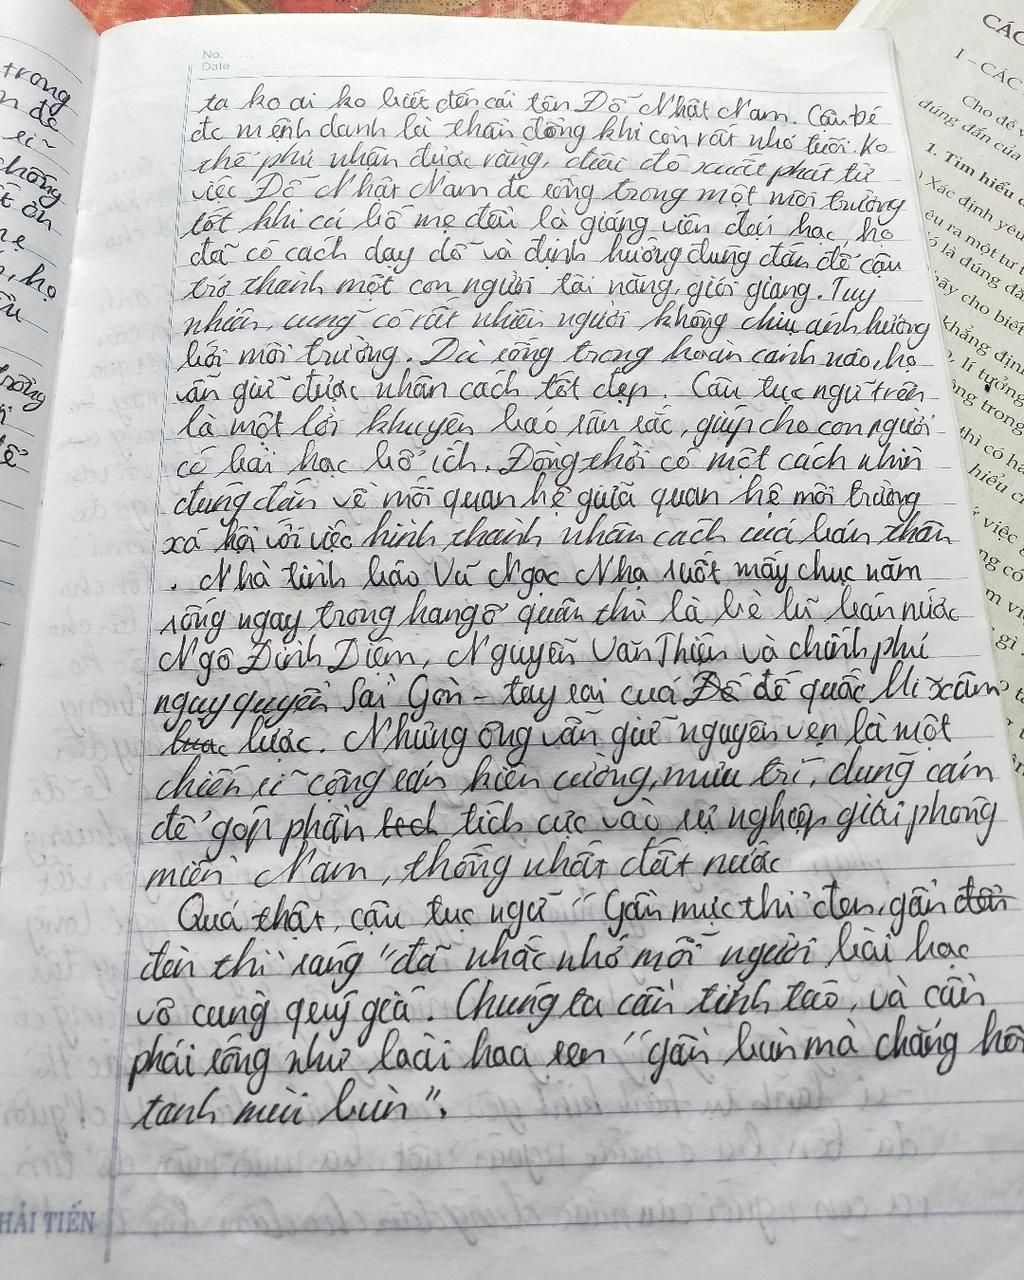 No.
Date
ta ko ai ko biết đến cái tên Đỗ Nhật Nam. Cậu bé
đc mệnh danh là thần đồng khi còn rất nhỏ tuổi. Ko
thể phủ nhận được rằng, điều đó xuất phát từ
việc Đỗ Nhật Nam đc sống trong một môi trường
tốt khi cả bố mẹ đều là giảng viên đại học, họ
đã có cách dạy dỗ và định hướng đúng đắn để cậu
trở thành một con người tài năng, giỏi giang. Tuy
nhiên, cũng có rất nhiều người không chịu ảnh hưởng
bởi môi trường. Dù sống trong hoàn cảnh nào, họ
vẫn giữ được nhân cách tốt đẹp. Câu tục ngữ trên
là một lời khuyên bảo sâu sắc, giúp cho con người
có bài học bổ ích. Đồng thời có một cách nhìn
đúng đắn về mối quan hệ giữa quan hệ môi trường
xã hội với việc hình thành nhân cách của bản thân
. Nhà tình báo Vũ Ngọc Nhạ suốt mấy chục năm
sống ngay trong hang ổ quân thù là bè lũ bán nước
Ngô Đình Diệm, Nguyễn Văn Thiệu và chính phủ
ngụy quyền Sài Gòn - tay sai của đế quốc Mĩ xâm
lược. Nhưng ông vẫn giữ nguyên vẹn là một
chiến sĩ cộng sản kiên cường, mưu trí, dũng cảm
để góp phần tích cực vào sự nghiệp giải phóng
miền Nam, thống nhất đất nước
Quả thật, câu tục ngữ " Gần mực thì đen, gần
đèn thì sáng " đã nhắc nhở mỗi người bài học
vô cùng quý giá. Chúng ta cần tỉnh táo, và cần
phải sống như loài hoa sen " gần bùn mà chẳng hôi
tanh mùi bùn ".
HẢI TIẾN
trong
chống
họ
CÁC
I - CÁC
Cho đề v
đúng đắn của
1. Tìm hiểu
Xác định yêu
êu ra một tư t
là đúng đắ
này cho biết
khẳng định
lí tưởng
trong
thì có
hiểu
việc